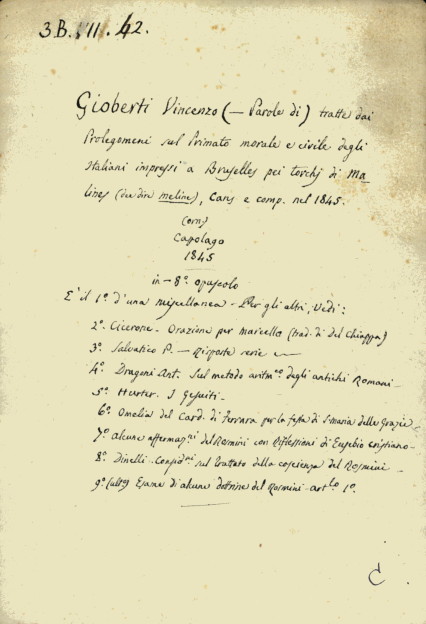 3.B.VII.42.
Gioberti Vincenzo (— Parole di) tratte dai
Prolegomeni sul Primato morale e civile degli
Italiani impressi a Bruselles pei torchj di Ma-
lines (dee dire meline), Cans e comp. nel 1845.
(ern)
Capolago
1845
in - 8º opuscolo
E' il 1º d'una miscellanea - Per gli altri, vedi:
2º Cicerone - Orazione per Marcello (trad. di Del Chiappa)
3º Salvatico P. — Risposte serie
4º Dragoni Ant. Sul metodo aritm.co degli antichi Romani
5º Hurter. I Gesuiti -
6º Omelia del Card. di Ferrara per la festa di S. Maria delle Grazie
7º alcune affermaz.ni del Rosmini con Riflessioni di Eusebio Cristiano -
8º Dinelli Consid.ni sul trattato della coscienza del Rosmini -
9º (ult.º) Esame di alcune dottrine del Rosmini - art.lo 1º
C